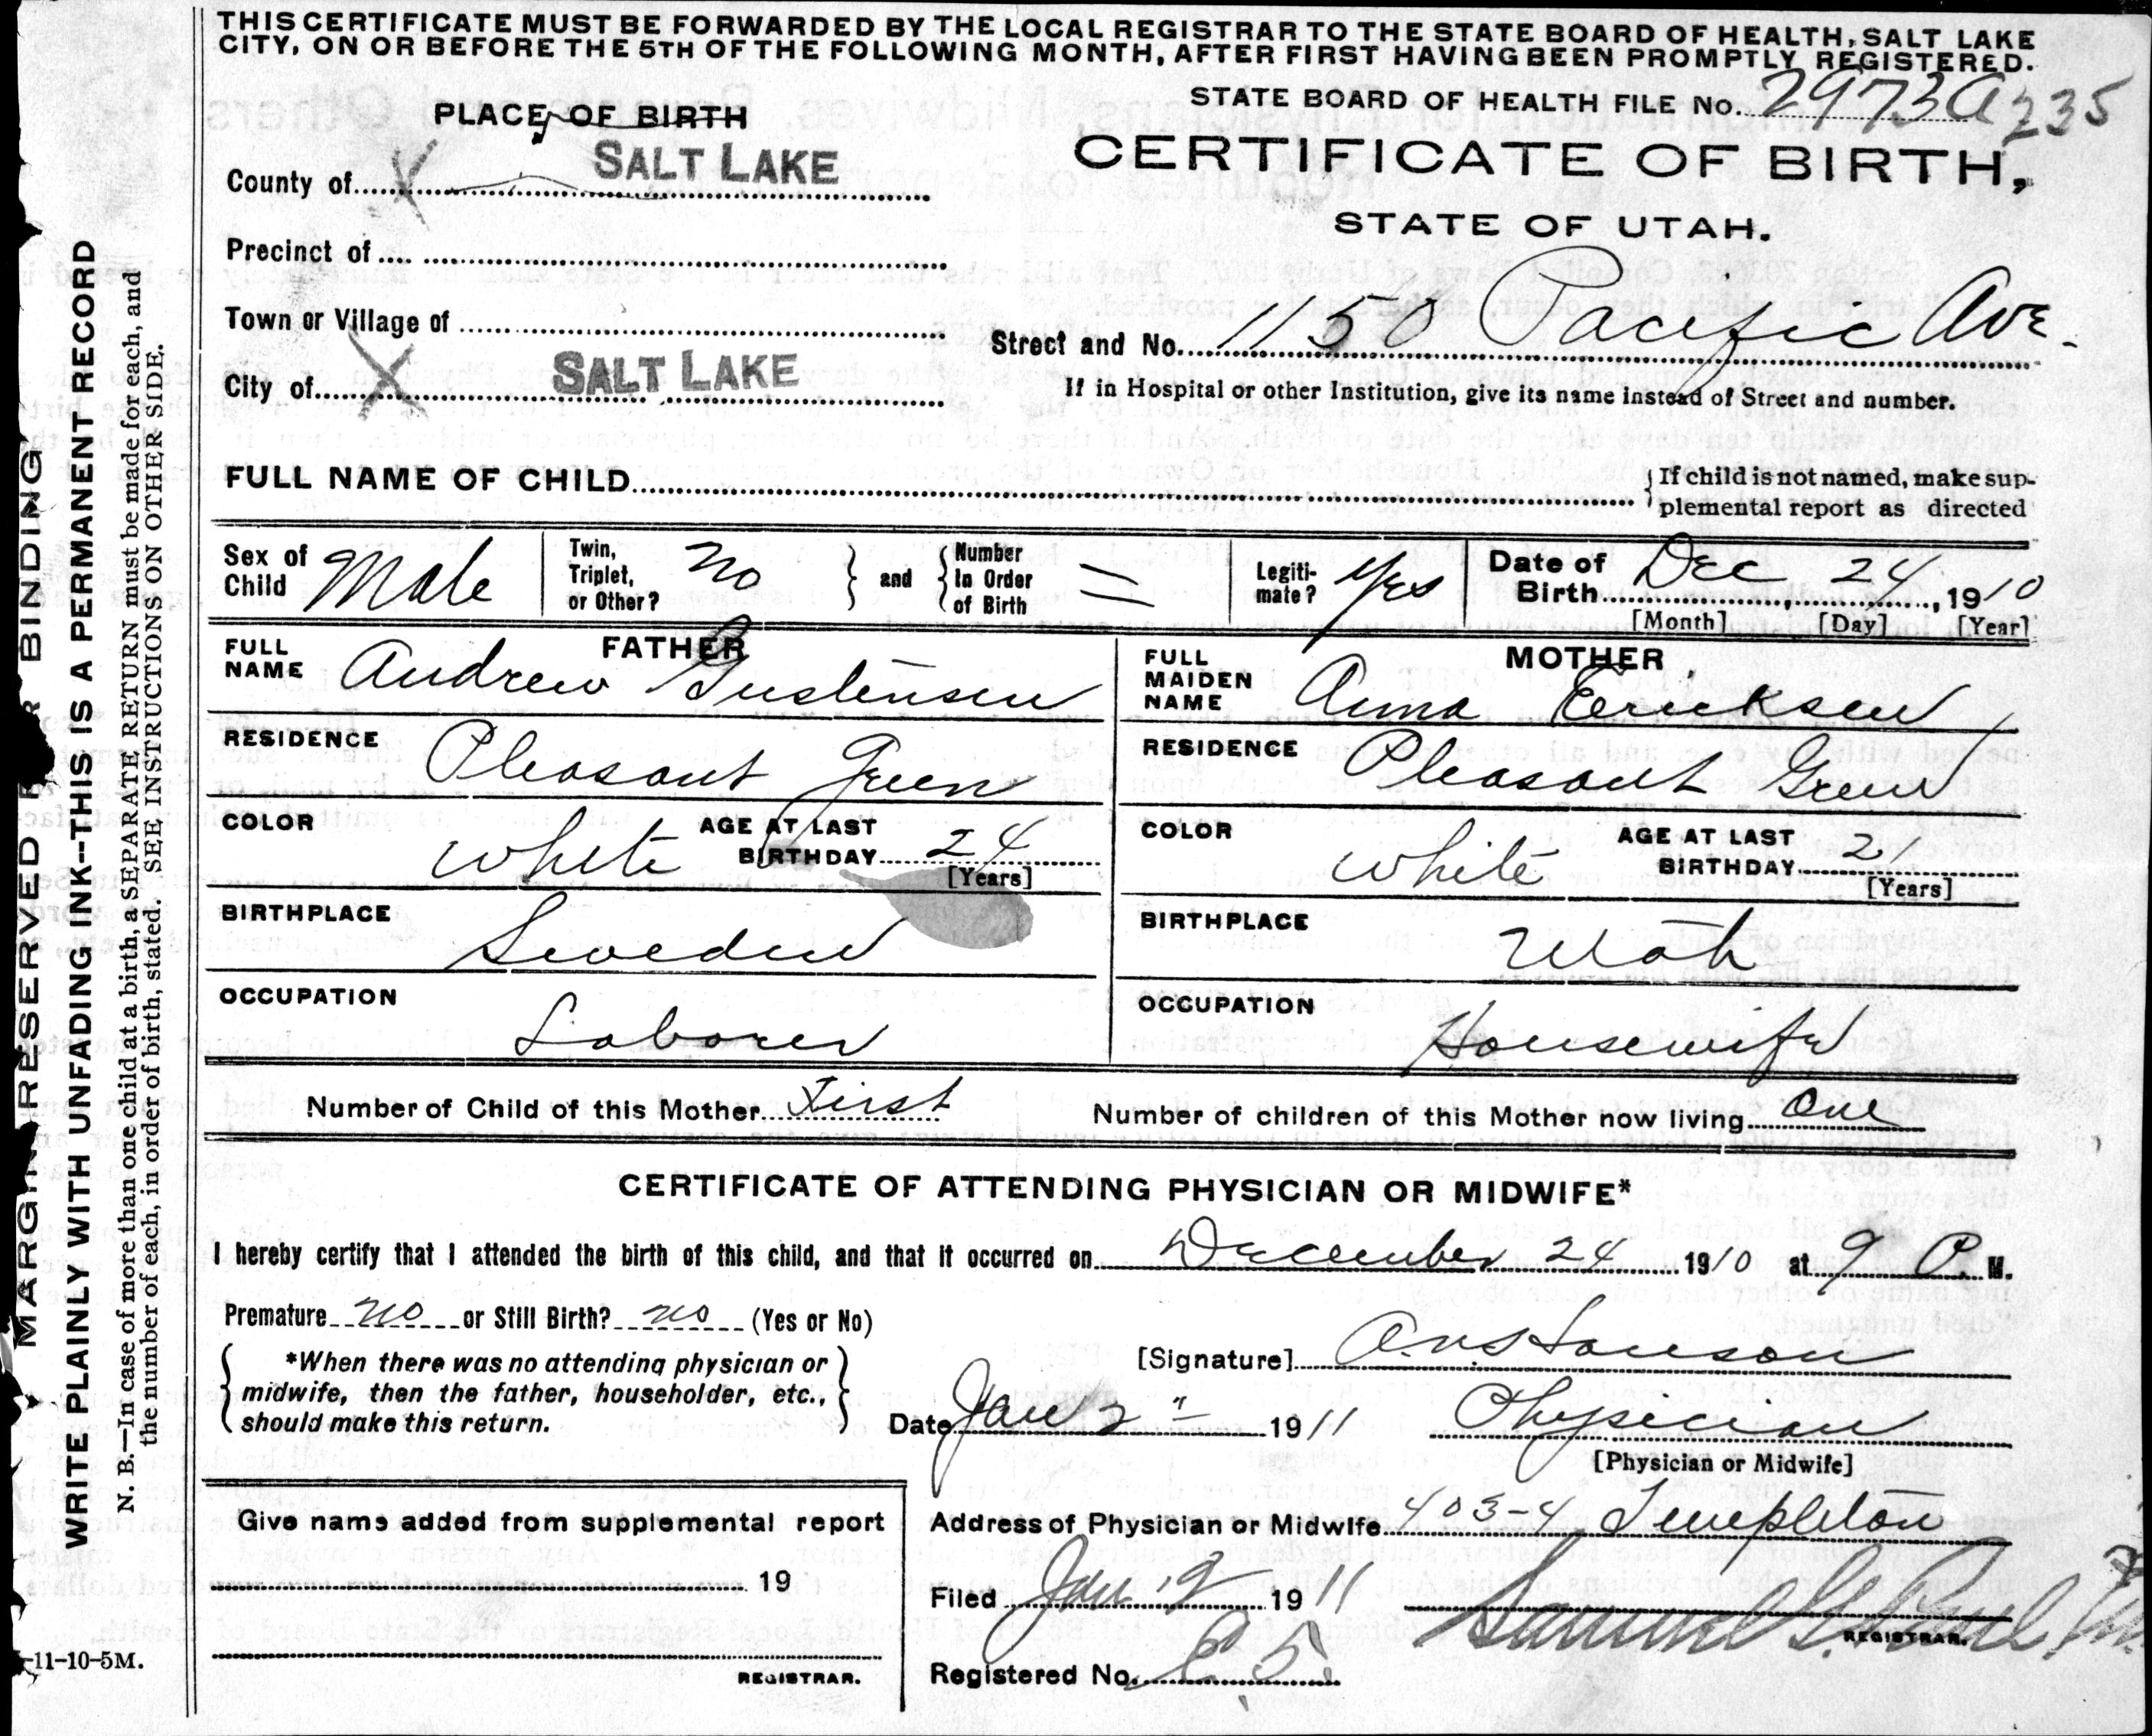 THIS CERTIFICATE MUST BE FORWARDED BY THE LOCAL REGISTRAR TO THE STATE BOARD OF HEALTH, SALT LAKE
CITY, ON OR BEFORE THE 5TH OF THE FOLLOWING MONTH, AFTER FIRST HAVING BEEN PROMPTLY REGISTERED.
STATE BOARD OF HEALTH FILE No. 2973a 235
PLACE OF BIRTH
CERTIFICATE OF BIRTH,
STATE OF UTAH.
County of X SALT LAKE
Precinct of
Town or Village of
Street and No. 1150 Pacific Ave.
City of X SALT LAKE
If in Hospital or other Institution, give its name instead of Street and number.
FULL NAME OF CHILD
If child is not named, make sup-
plemental report as directed
Sex of Child Male
Twin, Triplet, or Other? no
and
Number In Order of Birth =
Legiti-mate? Yes
Date of Birth Dec 24, 1910
[Month] [Day] [Year]
FATHER
FULL NAME Andrew Gustensen
RESIDENCE Pleasant Green
COLOR White AGE AT LAST BIRTHDAY 24
[Years]
BIRTHPLACE Sweden
OCCUPATION Laborer
MOTHER
FULL MAIDEN NAME Anna Ericksen
RESIDENCE Pleasant Green
COLOR White AGE AT LAST BIRTHDAY 21
[Years]
BIRTHPLACE Utah
OCCUPATION Housewife
Number of Child of this Mother First
Number of children of this Mother now living One
CERTIFICATE OF ATTENDING PHYSICIAN OR MIDWIFE*
I hereby certify that I attended the birth of this child, and that it occurred on December 24 1910 at 9 P. M.
Premature no or Still Birth? no (Yes or No)
*When there was no attending physician or
midwife, then the father, householder, etc.,
should make this return.
[Signature]
Date Jan 2 " 1911 Physician
[Physician or Midwife]
Give name added from supplemental report
19
REGISTRAR.
Address of Physician or Midwife 403-4 Templeton
Filed Jan 1911
Samuel G. Paul
REGISTRAR.
Registered No.
11-10-5M.
MARGIN RESERVED FOR BINDING
WRITE PLAINLY WITH UNFADING INK--THIS IS A PERMANENT RECORD
N. B.—In case of more than one child at a birth, a SEPARATE RETURN must be made for each, and
the number of each, in order of birth, stated. SEE INSTRUCTIONS ON OTHER SIDE.